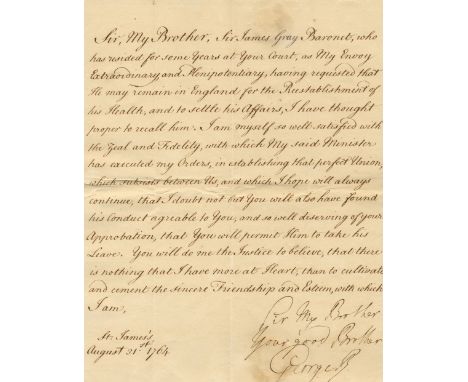 Sir, My Brother, Sir James Gray Baronet, who
has resided for some Years at Your Court, as My Envoy
Extraordinary and Plenipotentiary, having requested that
He may remain in England for the Reestablishment of
his Health, and to settle his Affairs, I have thought
proper to recall him. I am myself so well satisfied with
the Zeal and Fidelity, with which My said Minister
has executed my Orders, in establishing that perfect Union,
which subsists between Us, and which I hope will always
continue, that I doubt not but You will also have found
his Conduct agreable to You, and so well deserving of your
Approbation, that You will permit Him to take his
Leave. You will do me the Justice to believe, that there
is nothing that I have more at Heart, than to cultivate
and cement the Sincere Friendship and Esteem, with which
I am,
Sir My Brother
Your good Brother
George R
St. James's
August 21st 1764